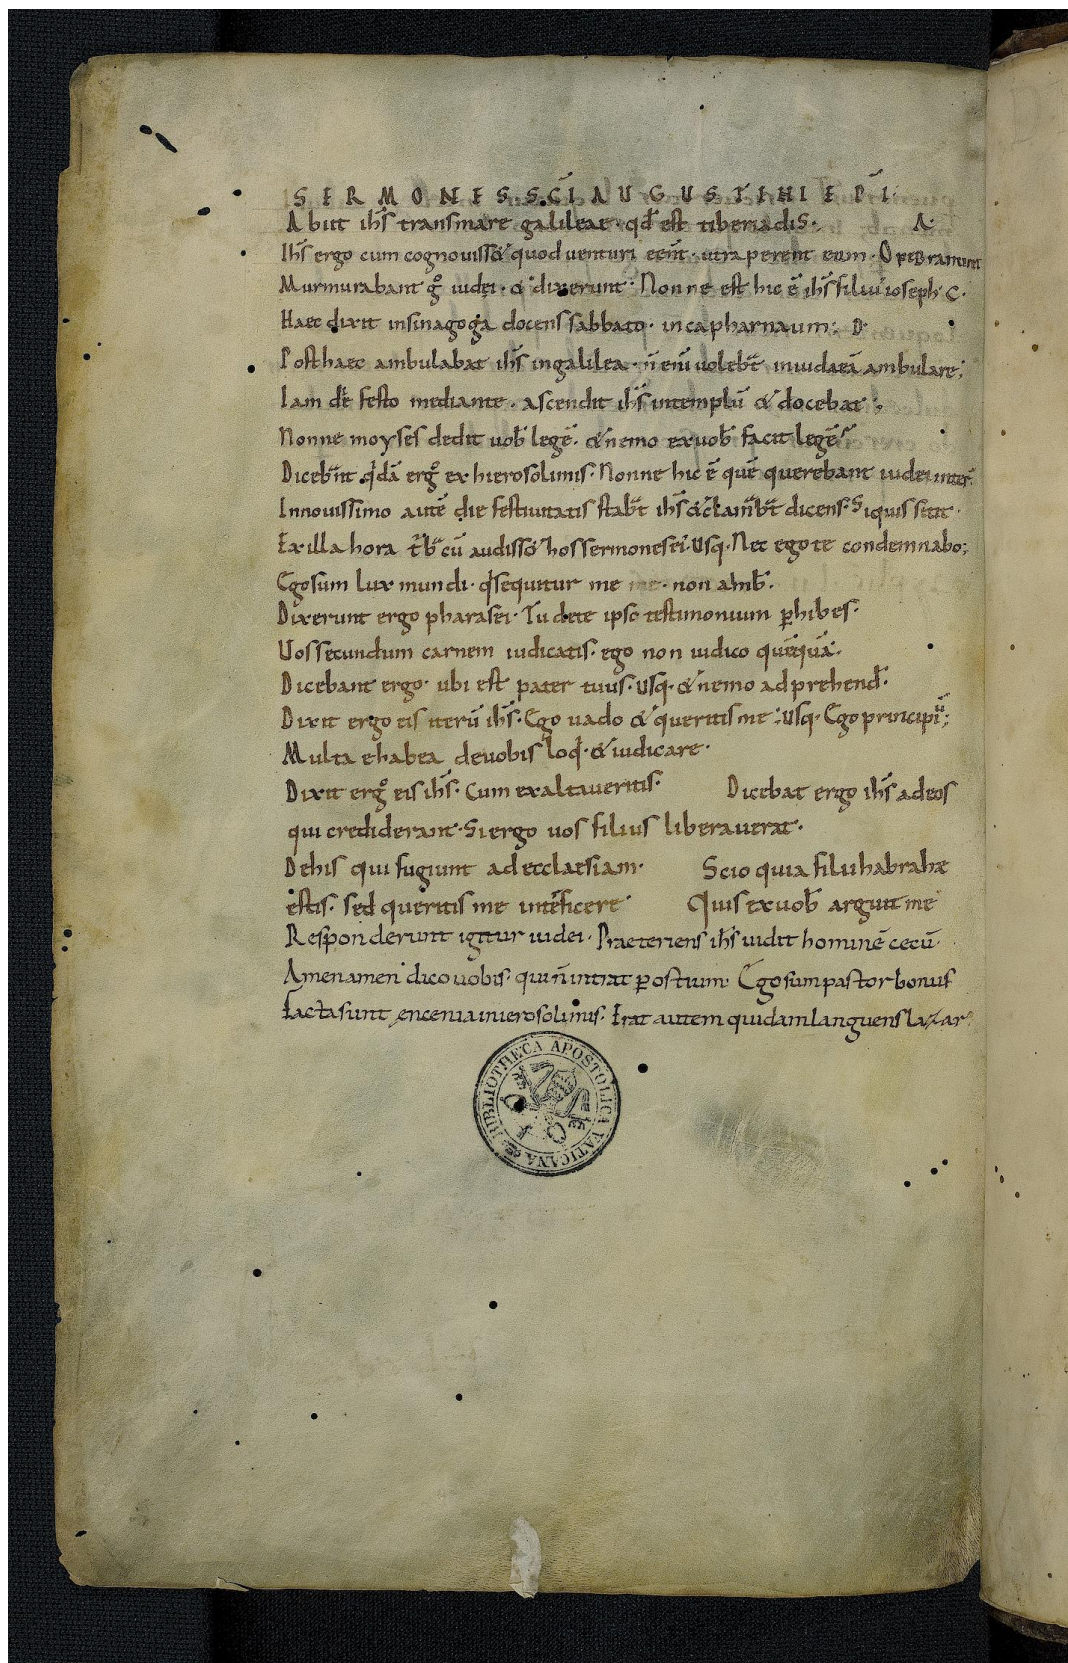 SERMONES SCĪ AUGUSTINI EPĪ·
Abiit ihs̄ transmare galileae· qd̄ est tiberiadis· A·
Ihs̄ ergo cum cognouiss& quod uenturi eēnt· utraperent eum· Operamini
Murmurabant gͦ iudei· & dixerunt· Nonne est hic ē ihs̄ filiu ioseph· C·
Haec dixit insinagoga docens sabbato· incapharnaum; D·
Posthaec ambulabat ihs̄ ingalilea· n̄ eni uoleb̄t iniudaeā ambulare;
Iam dē festo mediante· ascendit ihs̄ intemplū & docebat;
Nonne moyses dedit uob̄ legē· & nemo exuob̄ facit legē
Diceb̄nt qdā ergͦ ex hierosolimis· Nonne hic ē quē querebant iudei interf
Innouissimo autē die festiuitatis stab̄t ihs̄ & clamab̄t dicens· Siquis sitit·
Ex illa hora cū audisso hossermones ei· Usq· Nec egote condemnabo;
Egosum lux mundi· qi sequitur me me· non amb̄·
Dixerunt ergo pharasei· Tu dete ipso testimonium phibes·
Uos secundum carnem iudicatis· ego non iudico quēquā·
Dicebant ergo· ubi est pater tuus· usq· & nemo adprehend̄·
Dixit ergo eis iterū ihs̄· Ego uado & queritis me; usq· Ego principiū;
Multa ehabea deuobis loq· & iudicare·
Dixit ergͦ eis ihs̄· Cum exaltaueritis· Dicebat ergo ihs̄ adeos
qui crediderant· Si ergo uos filius liberauerat·
Dehis qui fugiunt adecclaesiam· Scio quia filii habrahe
estis· sed queritis me interficere· Quis exuob̄ arguit me
Responderunt igitur iudei· Praeteriens ihs̄ uidit hominē cecū·
Amenamen dico uobis· qui n̄ intrat p ostium· Egosum pastor bonus
Facta sunt encenia inierosolimis· Erat autem quidam languens lazar
BIBLIOTHECA APOSTOLICA VATICANA